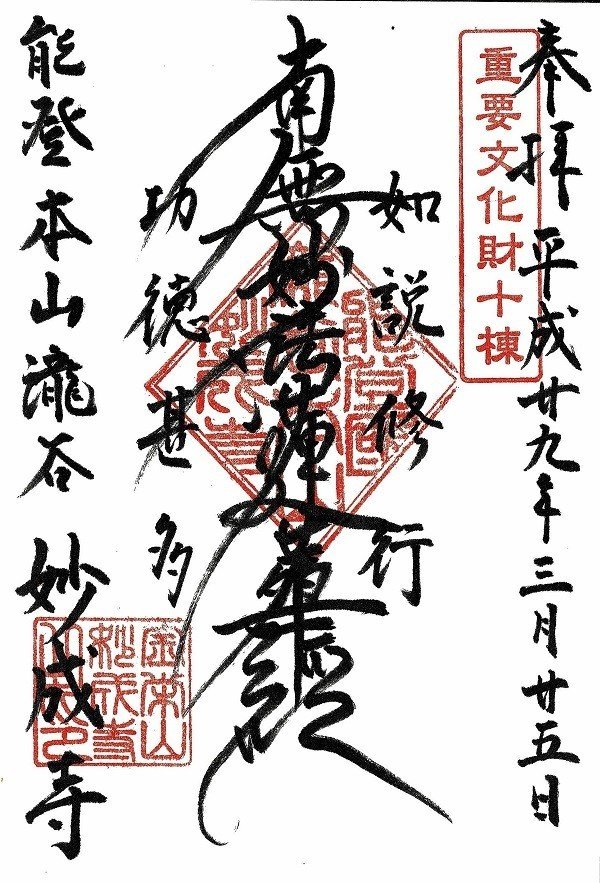 奉拝 平成廿九年三月廿五日
重要文化財十棟
如説修行
南無妙法蓮華経
功徳甚多
能登本山瀧谷 妙成寺
金栄山
妙成寺